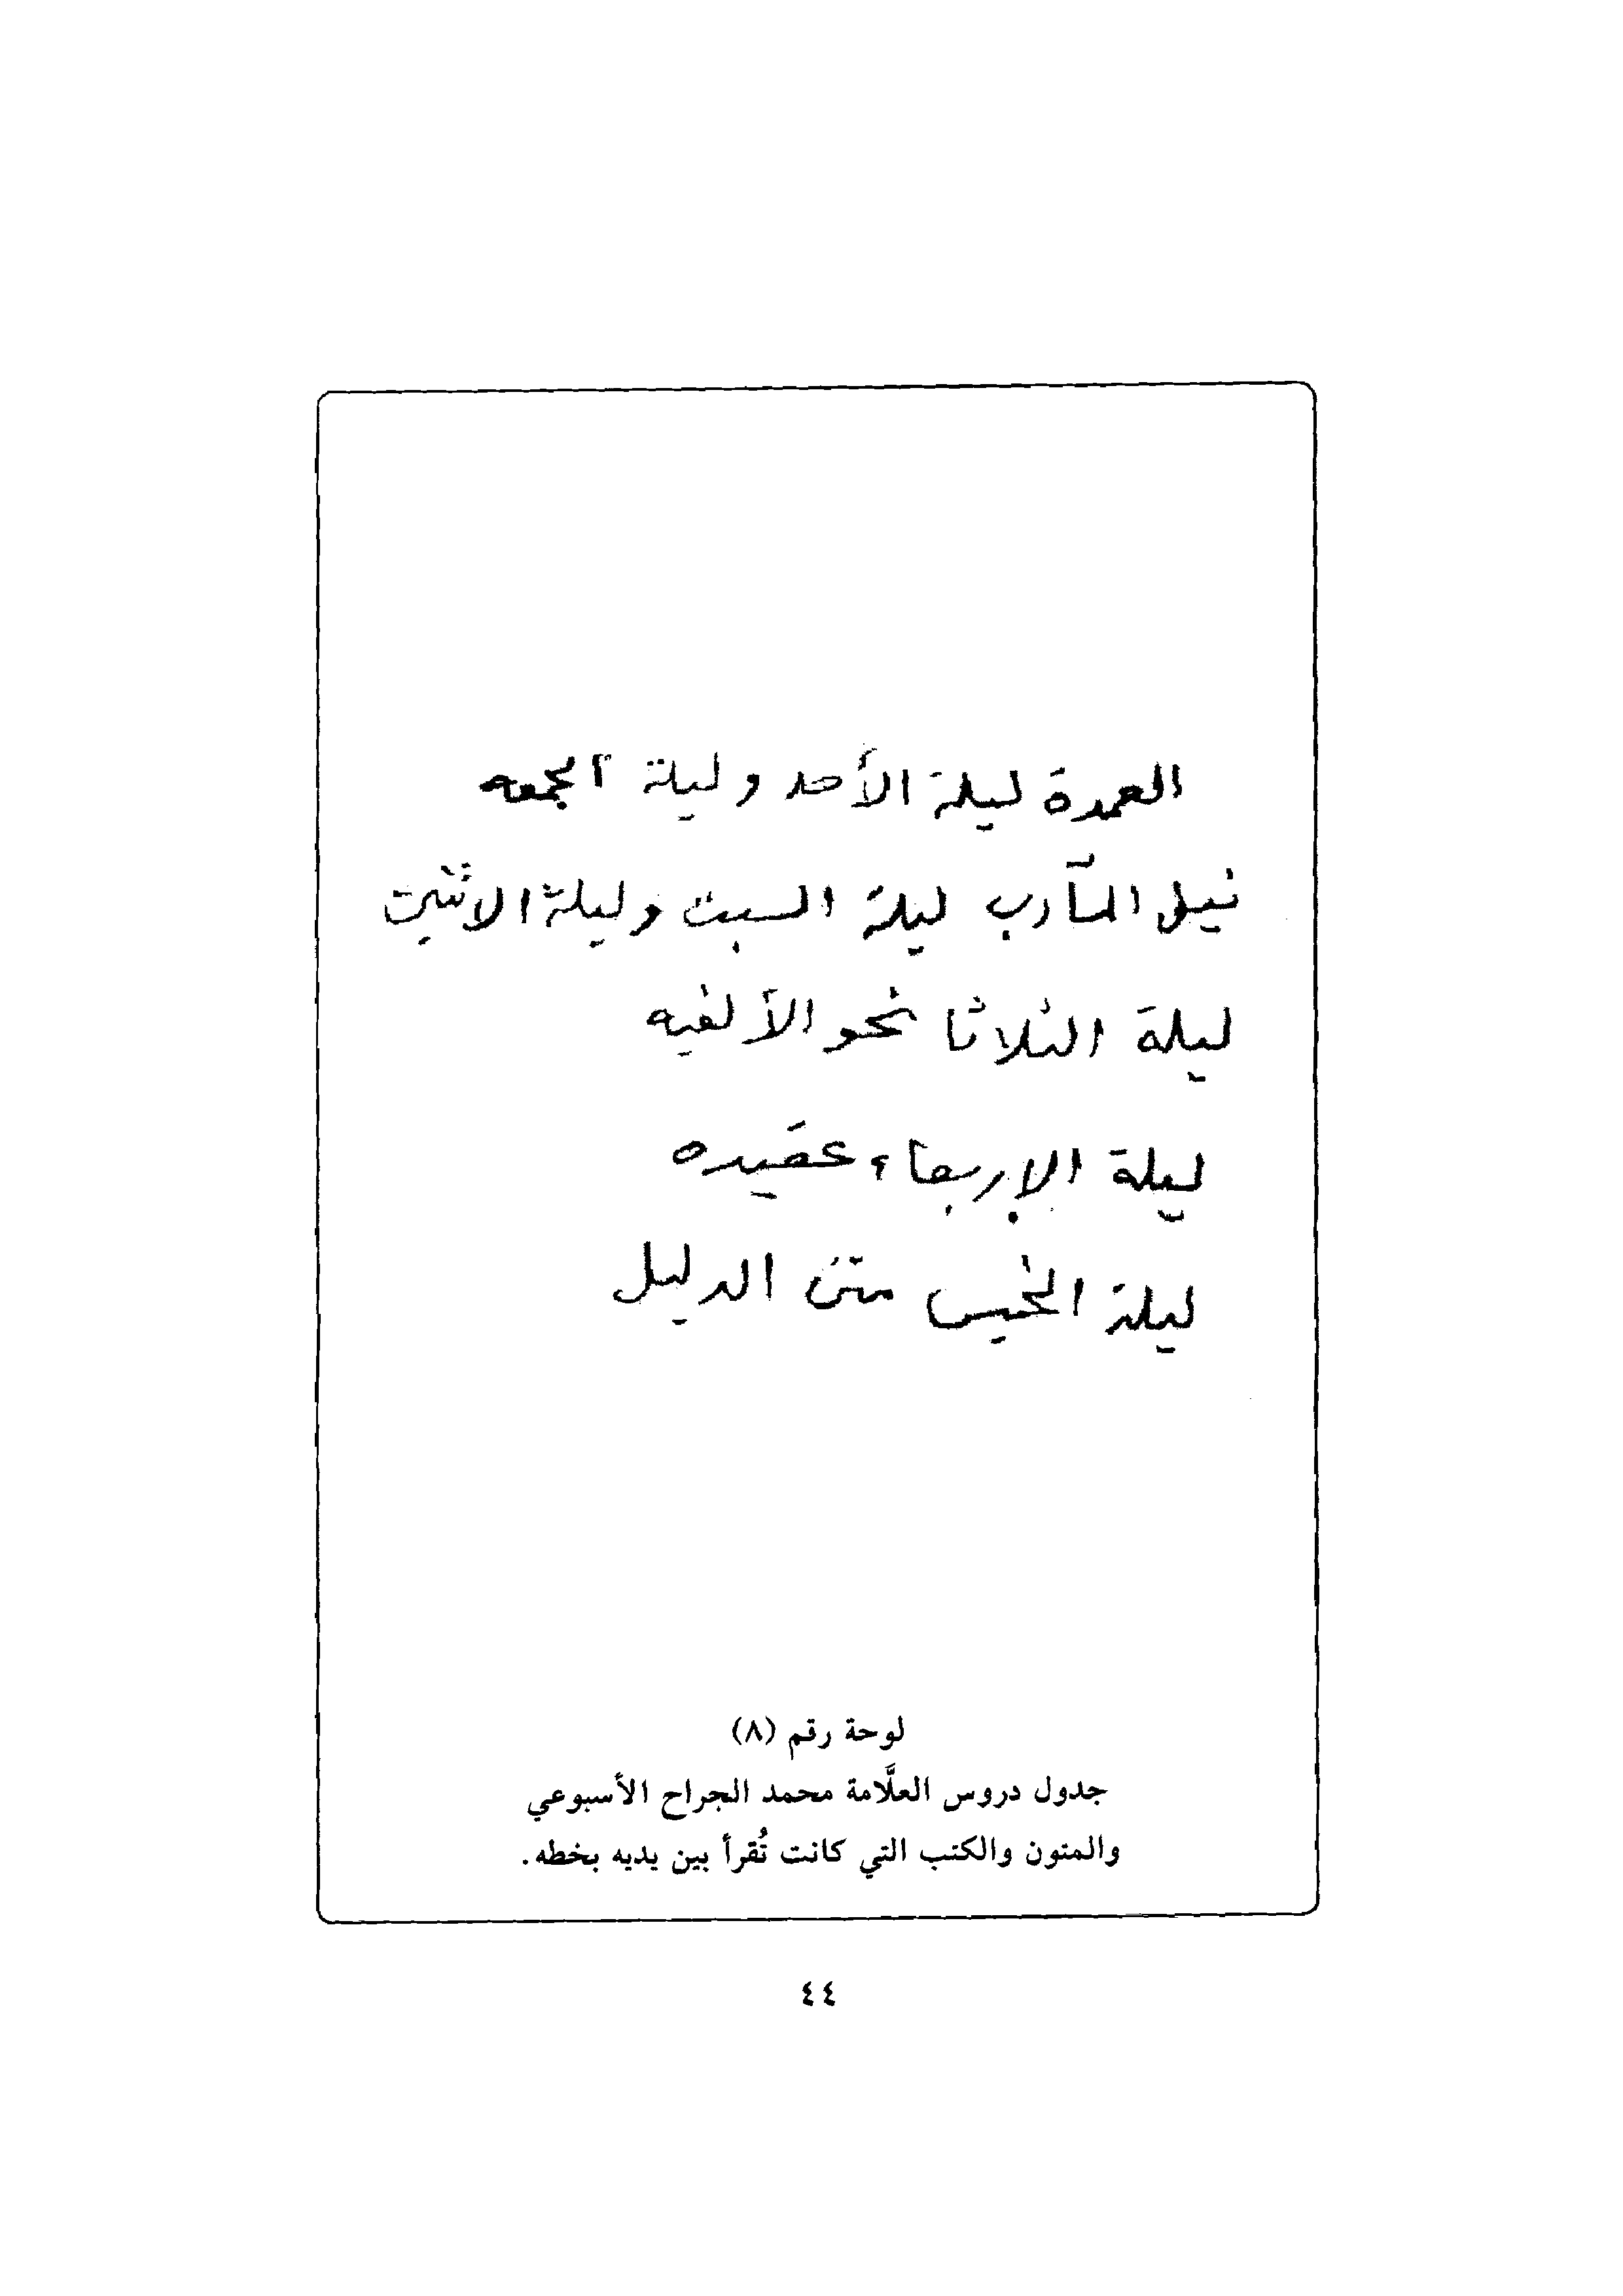 العمدة ليلة الأحد وليلة الجمعه
نيل المآرب ليلة السبت وليلة الاثنين
ليلة الثلاثا نحو الألفيه
ليلة الاربعاء عقيده
ليلة الخميس متن الدليل
لوحة رقم (٨)
جدول دروس العلَّامة محمد الجراح الأسبوعي
والمتون والكتب التي كانت تُقرأ بين يديه بخطه.
٤٤